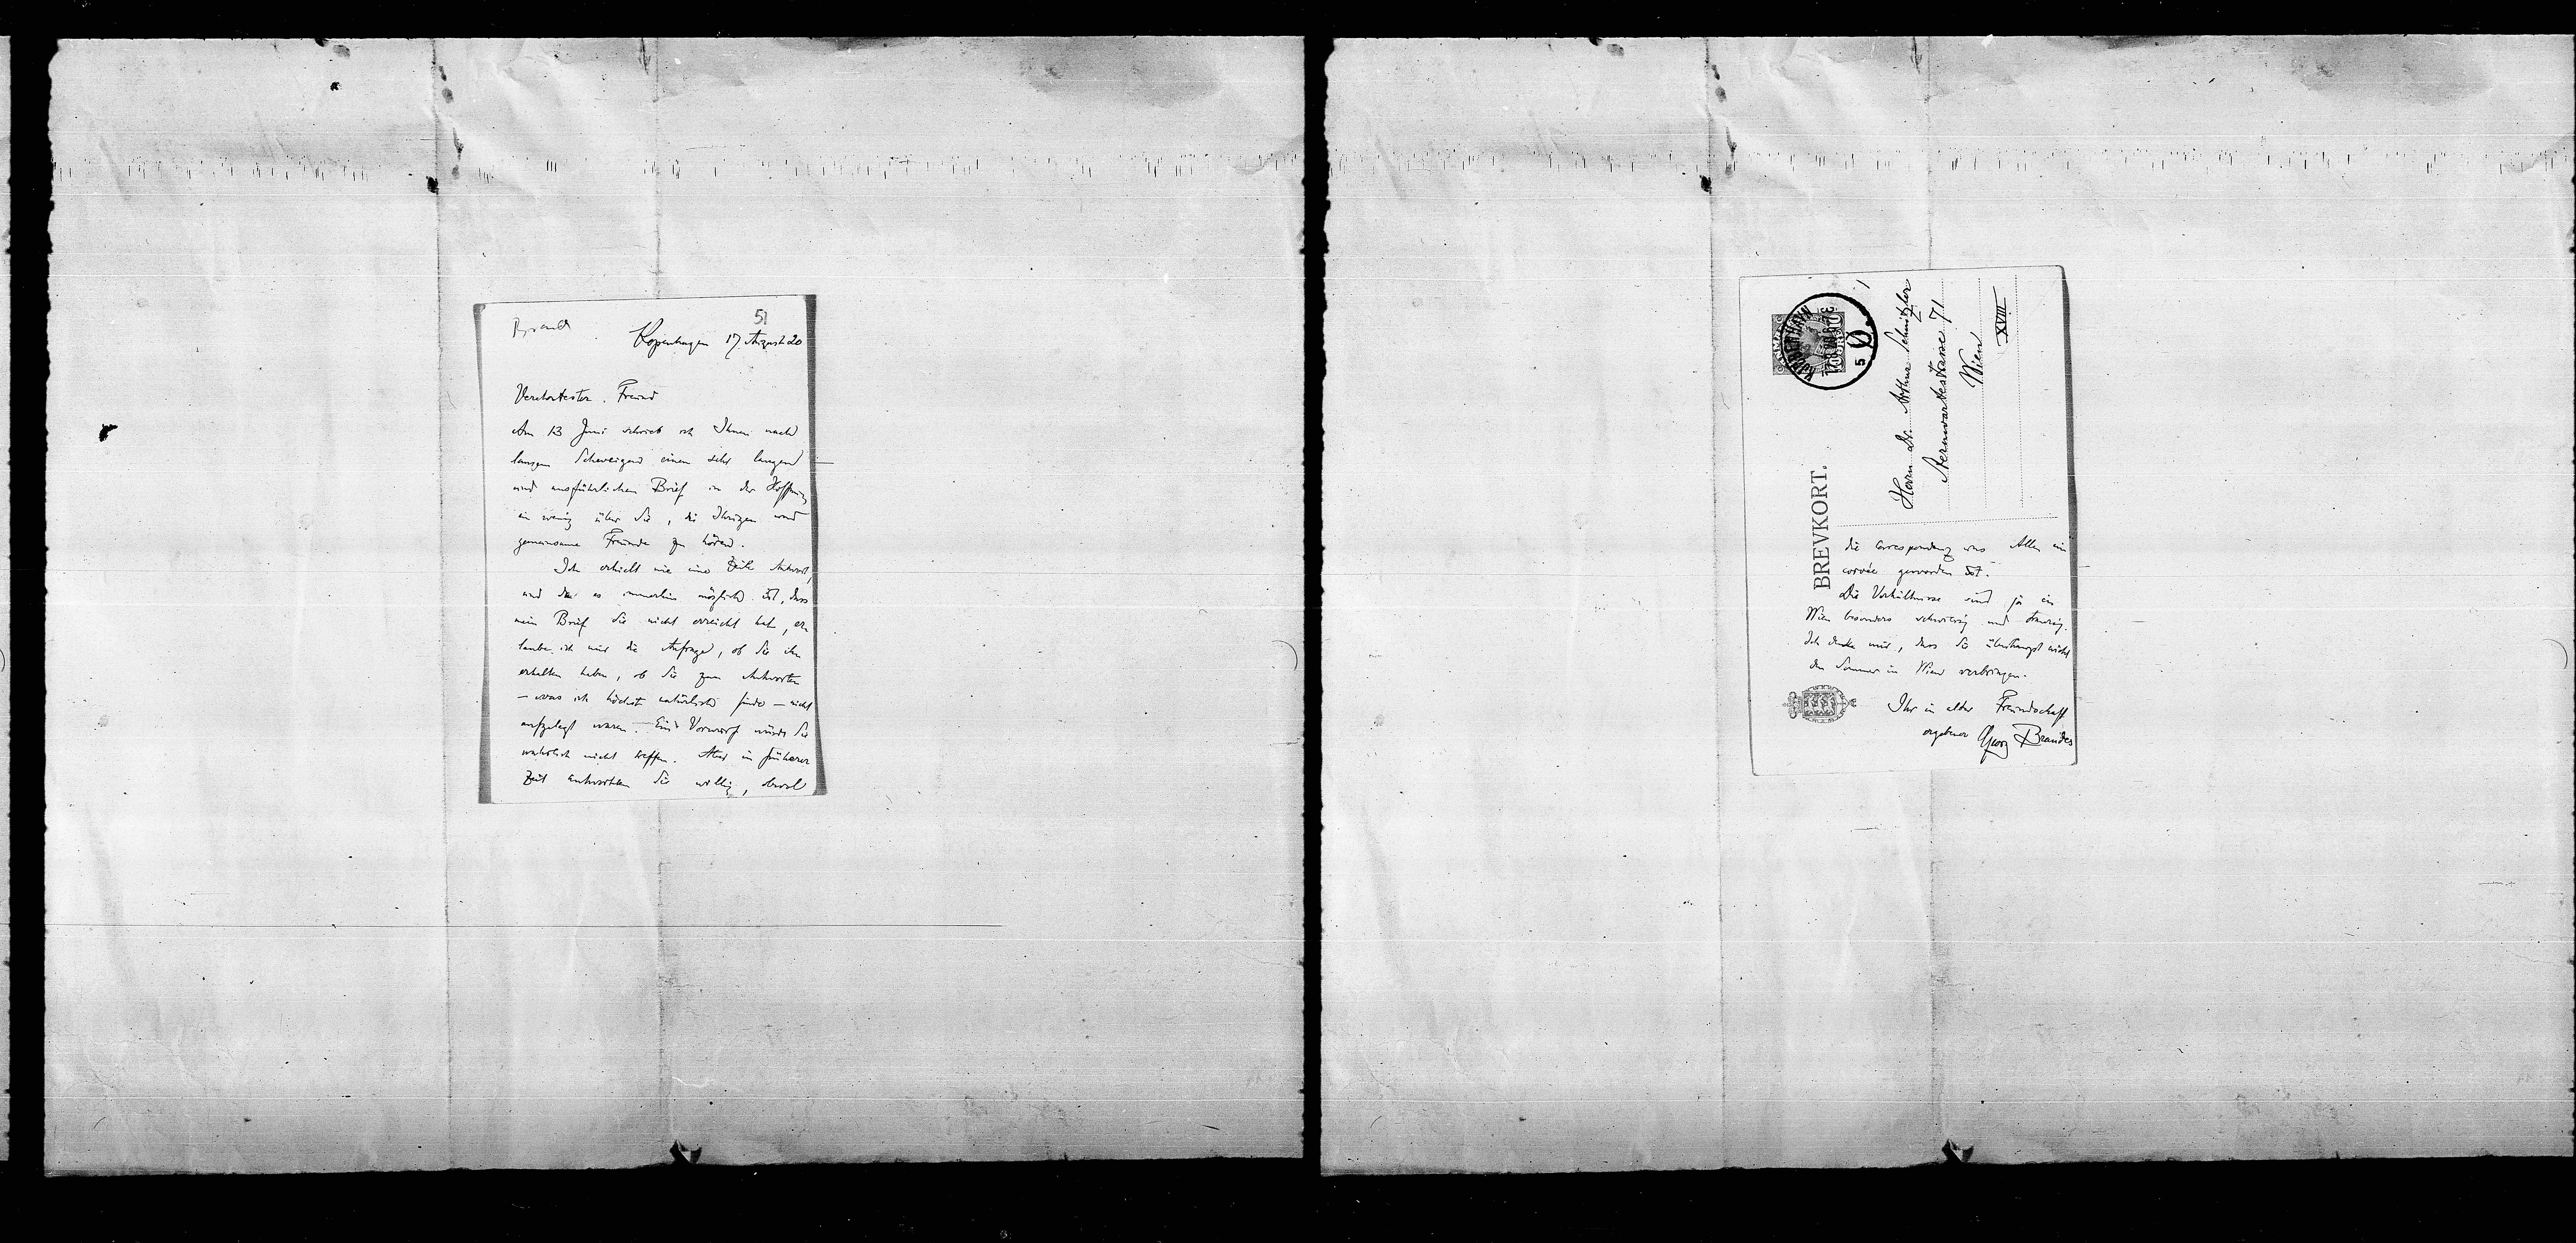 Brandes
51
Kopenhagen 17 August 20
Verehrtester Freund
Am 13 Juni schrieb ich Ihnen nach
langem Schweigen einen sehr langen
und ausführlichen Brief in der Hoffnung
ein wenig über Sie, die Ihrigen und
gemeinsame Freunde zu hören.
Ich erhielt nie eine Zeile Antwort,
und da es immerhin möglich ist, dass
mein Brief Sie nicht erreicht hat, er
laube ich mir die Anfrage, ob Sie ihn
erhalten haben, ob Sie zum Antworten
— was ich höchst natürlich finde — nicht
aufgelegt waren. — Ein Vorwurf würde Sie
wahrlich nicht treffen. Aber in früherer
Zeit antworteten Sie willig, obwol
BREVKORT.
KJØBENHAVN
17.8.20
5 Ø.
Herrn Dr. Arthur Schnitzler
Sternwartestrasse 71
Wien
XVIII
die Correspondenz uns Allen ein
corvée geworden ist.
Die Verhältnisse sind ja in
Wien besonders schwierig und traurig.
Ich denke mir, dass Sie überhaupt nicht
den Sommer in Wien verbringen.
Ihr in alter Freundschaft
ergebener Georg Brandes